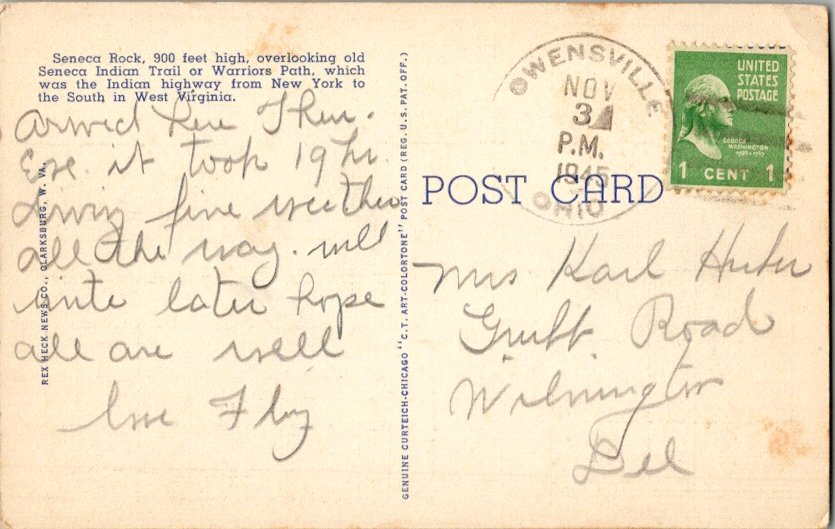 Seneca Rock, 900 feet high, overlooking old
Seneca Indian Trail or Warriors Path, which
was the Indian highway from New York to
the South in West Virginia.
Arived here Thur.
Eve. it took 19 hr
driving fine weather
all the way. will
write later hope
all are well
love
REX HECK NEWS CO., CLARKSBURG, W. VA.
GENUINE CURTEICH-CHICAGO "C.T. ART-COLORTONE" POST CARD (REG. U.S. PAT. OFF.)
OWENSVILLE
NOV
3
P.M.
1945
OHIO
UNITED
STATES
POSTAGE
GEORGE
WASHINGTON
1 CENT 1
POST CARD
Mrs Karl
Road
Wilmington
Del